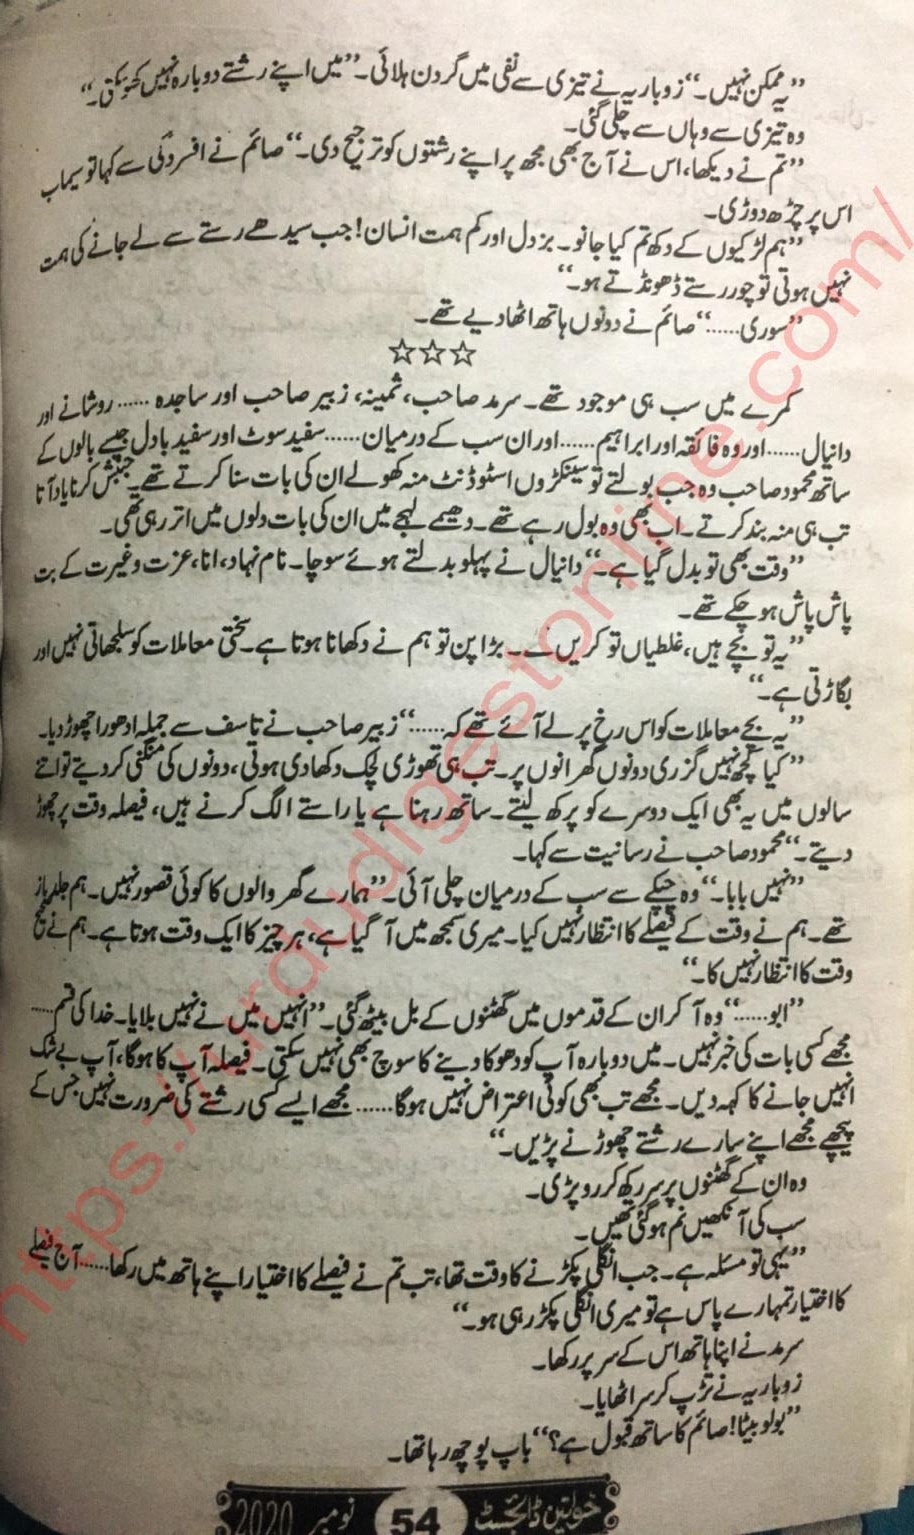 ”یہ ممکن نہیں۔“ زوباریہ نے تیزی سے نفی میں گردن ہلائی۔ ”میں اپنے رشتے دوبارہ نہیں کھو سکتی۔“
وہ تیزی سے وہاں سے چلی گئی۔
”تم نے دیکھا، اس نے آج بھی مجھ پر اپنے رشتوں کو ترجیح دی۔“ صائم نے افسردگی سے کہا تو سیماب
اس پر چڑھ دوڑی۔
”ہم لڑکیوں کے دکھ تم کیا جانو۔ بزدل اور کم ہمت انسان! جب سیدھے رستے سے لے جانے کی ہمت
نہیں ہوتی تو چور رستے ڈھونڈتے ہو۔“
”سوری......“ صائم نے دونوں ہاتھ اٹھا دیے تھے۔
☆☆☆
کمرے میں سب ہی موجود تھے۔ سرمد صاحب، ثمینہ، زبیر صاحب اور ساجدہ ...... روشانے اور
دانیال...... اور وہ فائقہ اور ابراہیم...... اور ان سب کے درمیان...... سفید سوٹ اور سفید بادل جیسے بالوں کے
ساتھ محمود صاحب وہ جب بولتے تو سینکڑوں اسٹوڈنٹ منہ کھولے ان کی بات سنا کرتے تھے۔ جنبش کرنا یاد آتا
تب ہی منہ بند کرتے۔ اب بھی وہ بول رہے تھے۔ دھیمے لہجے میں ان کی بات دلوں میں اتر رہی تھی۔
”وقت بھی تو بدل گیا ہے۔“ دانیال نے پہلو بدلتے ہوئے سوچا۔ نام نہاد، انا، عزت و غیرت کے بت
پاش پاش ہو چکے تھے۔
”یہ تو بچے ہیں، غلطیاں تو کریں گے۔ بڑا پن تو ہم نے دکھانا ہوتا ہے۔ سختی معاملات کو سلجھاتی نہیں اور
بگاڑتی ہے۔“
”یہ بچے معاملات کو اس رخ پر لے آئے تھے کہ......“ زبیر صاحب نے تاسف سے جملہ ادھورا چھوڑ دیا۔
”کیا کچھ نہیں گزری دونوں گھرانوں پر۔ تب ہی تھوڑی لچک دکھا دی ہوتی، دونوں کی منگنی کر دیتے تو اتنے
سالوں میں یہ بھی ایک دوسرے کو پرکھ لیتے۔ ساتھ رہنا ہے یا راستے الگ کرنے ہیں، فیصلہ وقت پر چھوڑ
دیتے۔“ محمود صاحب نے رسانیت سے کہا۔
”نہیں بابا۔“ وہ چپکے سے سب کے درمیان چلی آئی۔ ”ہمارے گھر والوں کا کوئی قصور نہیں۔ ہم جلد باز
تھے۔ ہم نے وقت کے فیصلے کا انتظار نہیں کیا۔ میری سمجھ میں آ گیا ہے، ہر چیز کا ایک وقت ہوتا ہے۔ ہم نے صحیح
وقت کا انتظار نہیں کا۔“
”ابو......“ وہ آ کر ان کے قدموں میں گھٹنوں کے بل بیٹھ گئی۔ ”انہیں میں نے نہیں بلایا۔ خدا کی قسم......
مجھے کسی بات کی خبر نہیں۔ میں دوبارہ آپ کو دھوکا دینے کا سوچ بھی نہیں سکتی۔ فیصلہ آپ کا ہوگا، آپ بے شک
انہیں جانے کا کہہ دیں۔ مجھے تب بھی کوئی اعتراض نہیں ہوگا...... مجھے ایسے کسی رشتے کی ضرورت نہیں جس کے
پیچھے مجھے اپنے سارے رشتے چھوڑنے پڑیں۔“
وہ ان کے گھٹنوں پر سر رکھ کر رو پڑی۔
سب کی آنکھیں نم ہو گئی تھیں۔
”یہی تو مسئلہ ہے۔ جب انگلی پکڑنے کا وقت تھا، تب تم نے فیصلے کا اختیار اپنے ہاتھ میں رکھا...... آج فیصلے
کا اختیار تمہارے پاس ہے تو میری انگلی پکڑ رہی ہو۔“
سرمد نے اپنا ہاتھ اس کے سر پر رکھا۔
زوباریہ نے تڑپ کر سر اٹھایا۔
”بولو بیٹا! صائم کا ساتھ قبول ہے؟“ باپ پوچھ رہا تھا۔
خواتین ڈائجسٹ 54 نومبر 2020
https://urdudigestonline.com/